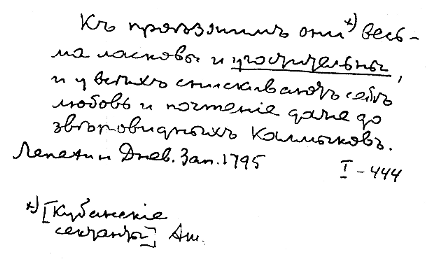 Къ проѣзжимъ они *) весь-
ма ласковы и угостительны,
и у всѣхъ снискиваютъ себѣ
любовь и почтеніе даже до
звѣровидныхъ Калмыковъ.
Лепехин Днев. Зап. 1795 I – 444
*) [Кубанскіе
секранты] Ан.